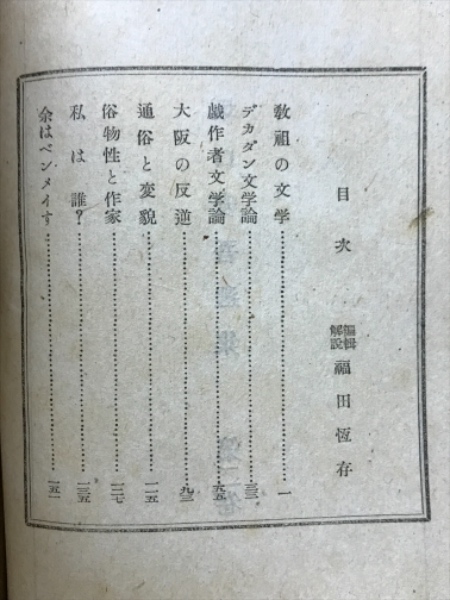 目次
編輯
解説
福田恆存
教祖の文学……一
デカダン文学論……三三
戯作者文学論……五五
大阪の反逆……九三
通俗と変貌……一一五
俗物性と作家……一二七
私は誰？……一三五
余はベンメイす……一五一